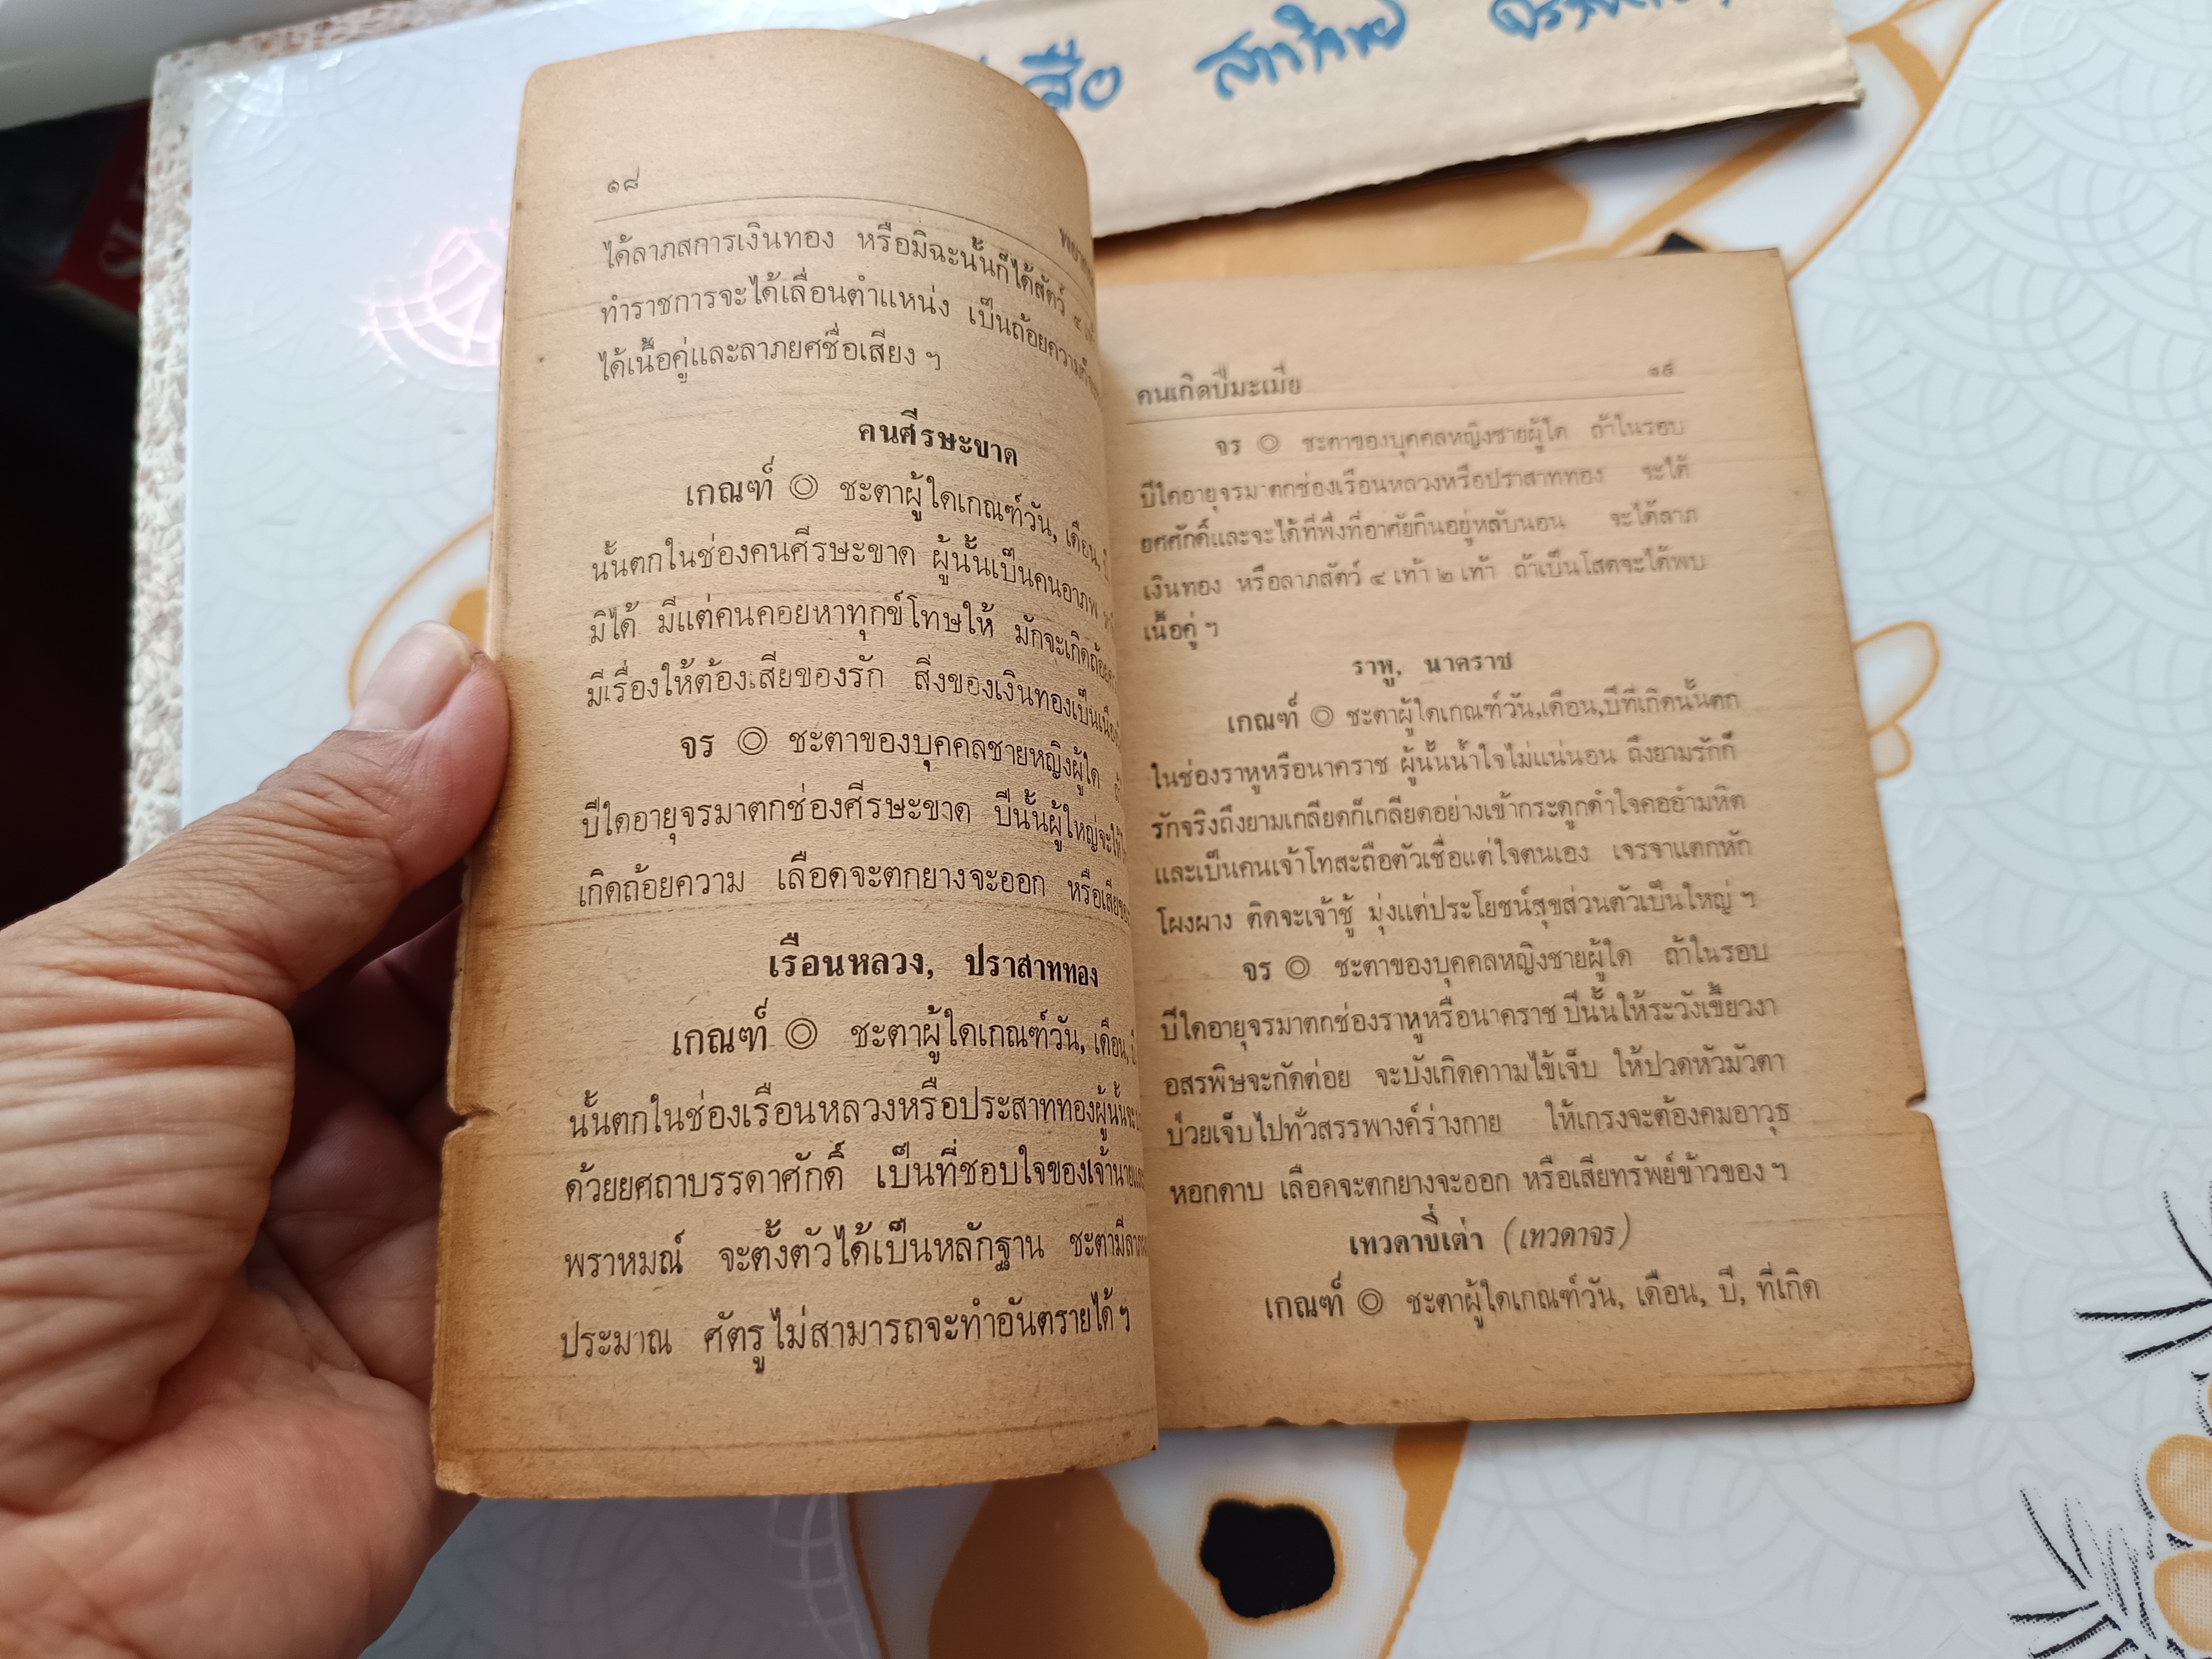 สือ สภาไทย
๑๘
ได้ลาภสการเงินทอง หรือมิฉะนั้นก็ได้สัตว์ ๔
ทำราชการจะได้เลื่อนตำแหน่ง เป็นถ้อยความก็จะ
ได้เนื้อคู่และลาภยศชื่อเสียง ฯ
คนศีรษะขาด
เกณฑ์ ◎ ชะตาผู้ใดเกณฑ์วัน, เดือน,
นั้นตกในช่องคนศีรษะขาด ผู้นั้นเป็นคนอาภพ
มิได้ มีแต่คนคอยหาทุกข์โทษให้ มักจะเกิดถ้อย
มีเรื่องให้ต้องเสียของรัก สิ่งของเงินทองเป็นเนือง
จร ◎ ชะตาของบุคคลชายหญิงผู้ใด
ปีใดอายุจรมาตกช่องศีรษะขาด ปีนั้นผู้ใหญ่จะให้
เกิดถ้อยความ เลือดจะตกยางจะออก หรือเสีย
เรือนหลวง, ปราสาททอง
เกณฑ์ ◎ ชะตาผู้ใดเกณฑ์วัน, เดือน,
นั้นตกในช่องเรือนหลวงหรือประสาททองผู้นั้น
ด้วยยศถาบรรดาศักดิ์ เป็นที่ชอบใจของเจ้านาย
พราหมณ์ จะตั้งตัวได้เป็นหลักฐาน ชะตามี
ประมาณ ศัตรูไม่สามารถจะทำอันตรายได้ ฯ
คนเกิดปีมะเมีย ๑๙
จร ◎ ชะตาของบุคคลหญิงชายผู้ใด ถ้าในรอบ
ปีใดอายุจรมาตกช่องเรือนหลวงหรือปราสาททอง จะได้
ยศศักดิ์และจะได้ที่พึ่งที่อาศัยกินอยู่หลับนอน จะได้ลาภ
เงินทอง หรือลาภสัตว์ ๔ เท้า ๒ เท้า ถ้าเป็นโสดจะได้พบ
เนื้อคู่ ฯ
ราหู, นาคราช
เกณฑ์ ◎ ชะตาผู้ใดเกณฑ์วัน,เดือน,ปีที่เกิดนั้นตก
ในช่องราหูหรือนาคราช ผู้นั้นน้ำใจไม่แน่นอน ถึงยามรักก็
รักจริงถึงยามเกลียดก็เกลียดอย่างเข้ากระดูกดำใจคออำมหิต
และเป็นคนเจ้าโทสะถือตัวเชื่อแต่ใจตนเอง เจรจาแตกหัก
โผงผาง ติดจะเจ้าชู้ มุ่งแต่ประโยชน์สุขส่วนตัวเป็นใหญ่ ฯ
จร ◎ ชะตาของบุคคลหญิงชายผู้ใด ถ้าในรอบ
ปีใดอายุจรมาตกช่องราหูหรือนาคราช ปีนั้นให้ระวังเขี้ยวงา
อสรพิษจะกัดต่อย จะบังเกิดความไข้เจ็บ ให้ปวดหัวมัวตา
ป่วยเจ็บไปทั่วสรรพางค์ร่างกาย ให้เกรงจะต้องคมอาวุธ
หอกดาบ เลือดจะตกยางจะออก หรือเสียทรัพย์ข้าวของ ฯ
เทวดาขี่เต่า (เทวดาจร)
เกณฑ์ ◎ ชะตาผู้ใดเกณฑ์วัน, เดือน, ปี, ที่เกิด